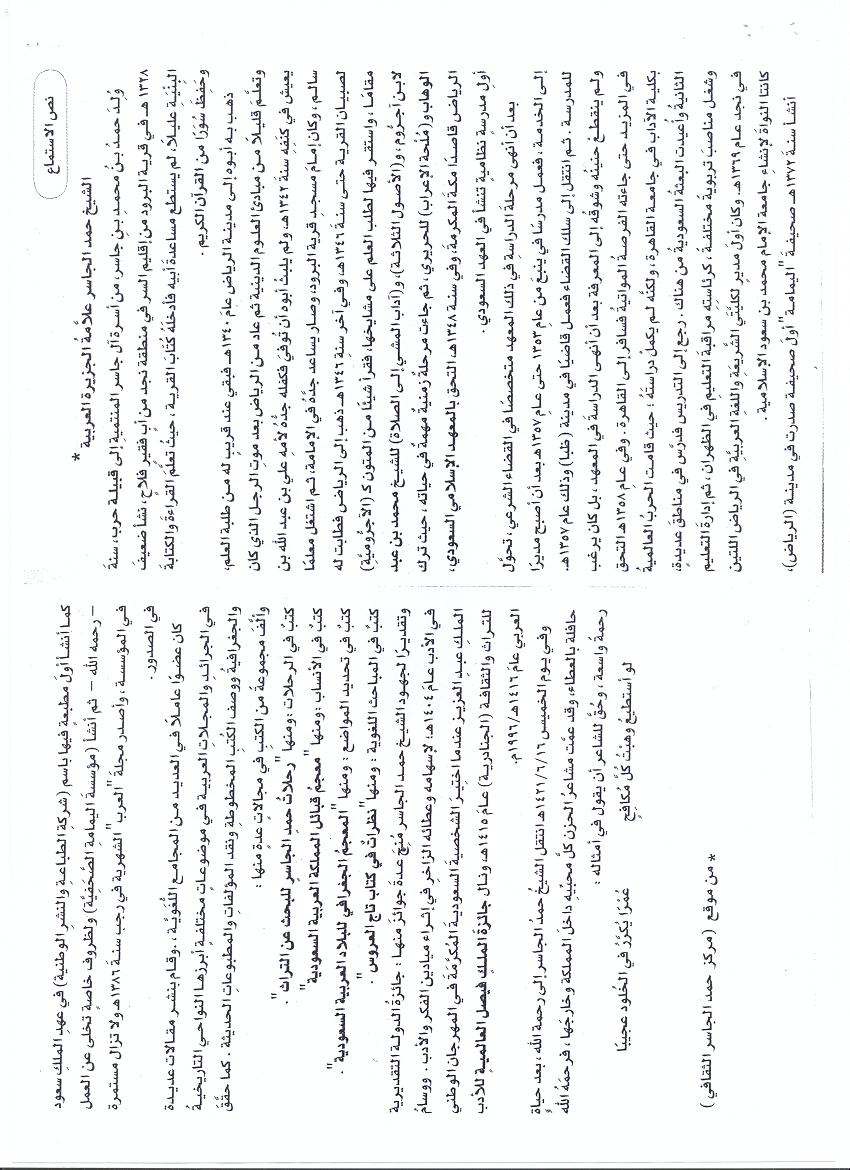 نص الاستماع
الشيخ حمد الجاسر علاَّمةُ الجزيرة العربية *
وُلدَ حمدُ بنُ محمدِ بنِ جاسر، من أسرةِ آل جاسر المنتمية إلى قبيلة حرب، سنةَ
١٣٢٨ هـ في قريةِ البرود من إقليم السر في منطقة نجد من أبٍ فقيرٍ فلاحٍ، نشأ ضعيفَ
البِنْيَة عليلاً، لم يستطع مساعدةَ أبيه فأدخلَهُ كُتَّابَ القرية، حيثُ تعلَّمَ القراءةَ والكتابةَ
وحَفِظَ سُوَرًا من القرآن الكريم .
ذهب به أبوه إلى مدينة الرياض عامَ ١٣٤٠ هـ فبقي عند قريبٍ له من طلبة العلم،
وتعلَّمَ قليلاً من مبادئِ العلوم الدينية ثم عاد من الرياض بعد موت الرجل الذي كان
يعيش في كنَفِهِ سنةَ ١٣٤٢هـ، ولم يلبثْ أبوه أن تُوفيَ فكفله جدُّهُ لأمه علي بن عبد الله بن
سالم، وكان إمامَ مسجدِ قرية البرود، وصار يساعد جدَّهُ في الإمامة، ثم اشتغل معلمًا
لصبيان القرية حتى سنة ١٣٤٦هـ، وفي آخر سنة ١٣٤٦هـ ذهب إلى الرياض فطابت له
مقامًا، واستقر فيها لطلب العلم على مشايخها، فقرأ شيئًا من المتون كـ (الآجروميةِ)
لابن آجرُّوم، و(الأصول الثلاثة)، و(آداب المشي إلى الصلاة) للشيخ محمد بن عبد
الوهاب و(مُلحة الإعراب) للحريري، ثم جاءت مرحلةٌ زمنيةٌ مهمةٌ في حياته، حيث ترك
الرياض قاصدًا مكةَ المكرمةَ، وفي سنة ١٣٤٨هـ، التحق بالمعهد الإسلامي السعودي،
أولِ مدرسةٍ نظاميةٍ تنشأ في العهد السعودي .
بعد أن أنهى مرحلةَ الدراسة في ذلك المعهد متخصصًا في القضاء الشرعي، تحوَّل
إلى الخدمة، فعمل مدرسًا في ينبعَ من عام ١٣٥٣ حتى عام ١٣٥٧هـ بعد أن أصبح مديرًا
للمدرسة . ثم انتقل إلى سلك القضاء فعمل قاضيًا في مدينة (ظبا) وذلك عام ١٣٥٧هـ.
ولم ينقطعْ حنينُه وشوقُه إلى المعرفة بعد أن أنهى الدراسةَ في المعهد، بل كان يرغب
في المزيد حتى جاءته الفرصةُ المواتيةُ فسافر إلى القاهرة . وفي عام ١٣٥٨هـ التحق
بكلية الآداب في جامعة القاهرة، ولكنَّه لم يكملْ دراستَهُ؛ حيث قامت الحربُ العالميةُ
الثانيةُ وأُعيدت البعثةُ السعودية من هناك . رجع إلى التدريس فدرَّسَ في مناطقَ عديدةٍ،
وشغل مناصبَ تربويةً مختلفةً، كرئاستِهِ مراقبةَ التعليم في الظهران، ثم إدارة التعليم
في نجد عام ١٣٦٩هـ، وكان أولَ مديرٍ لكليَّتَي الشَّريعةِ واللغةِ العربيَّةِ في الرياض اللتين
كانتا النواةَ لإنشاء جامعة الإمام محمد بن سعود الإسلامية .
أنشأ سنة ١٣٧٢هـ صحيفةَ "اليمامة" أولَ صحيفةٍ صدرت في مدينة (الرياض)،
كما أنشأ أولَ مطبعةٍ فيها باسم (شركة الطباعة والنشر الوطنية) في عهد الملك سعود
– رحمه الله – ثم أنشأ (مؤسسةَ اليمامة الصَّحَفيَّة) ولظروف خاصةٍ تخلَّى عن العمل
في المؤسسة، وأصدر مجلةَ "العرب" الشهريةَ في رجب سنةَ ١٣٨٦هـ ولا تزال مستمرة
في الصدور .
كان عضوًا عاملاً في العديد من المجامع اللُّغَويَّة، ..وقام بنشر مقالاتٍ عديدةٍ
في الجرائد والمجلات العربية في موضوعاتٍ مختلفةٍ أبرزها النواحي التاريخيةُ
والجغرافيةُ ووصفُ الكتُبِ المخطوطةِ ونقد المؤلفات والمطبوعات الحديثة . كما حقَّقَ
وألَّفَ مجموعةً من الكتب في مجالاتٍ عدةٍ منها :
كتبٌ في الرحلات : ومنها "رحلاتُ حمدِ الجاسر للبحث عن التراث" .
كتبٌ في الأنساب : ومنها "معجمُ قبائل المملكة العربية السعودية"
كتبٌ في تحديد المواضع : ومنها "المعجمُ الجغرافي للبلاد العربية السعودية" .
كتبٌ في المباحث اللغوية : ومنها "نظراتٌ في كتاب تاج العروس" .
وتقديرًا لجهود الشيخ حمد الجاسر مُنِحَ عدةَ جوائزَ منها : جائزةُ الدولة التقديرية
في الأدب عامَ ١٤٠٤هـ، لإسهامِه وعطائِه الزاخر في إثراء ميادين الفكر والأدب . ووسامُ
الملك عبد العزيز عندما اختِيرَ الشخصيةَ السعوديةَ المُكرَّمةَ في المهرجان الوطني
للتراث والثقافة (الجنادرية) عام ١٤١٥هـ، ونال جائزةَ الملك فيصل العالميةَ للأدب
العربي عام ١٤١٦هـ/١٩٩٦م.
وفي يوم الخميس ١٤٢١/٦/١٦هـ انتقل الشيخُ حمدُ الجاسر إلى رحمة الله، بعد حياةٍ
حافلةٍ بالعطاء، وقد عمَّت مشاعرُ الحزن كلَّ محبِّيه داخلَ المملكة وخارجَها، فرحمَهُ الله
رحمةً واسعة، وحُقَّ للشاعر أن يقول في أمثاله :
لو أستطيعُ وهبْتُ كُلَّ مُكافحٍ عُمُرًا يُكرَّرُ في الخُلود عجيبًا
* من موقع (مركز حمد الجاسر الثقافي)